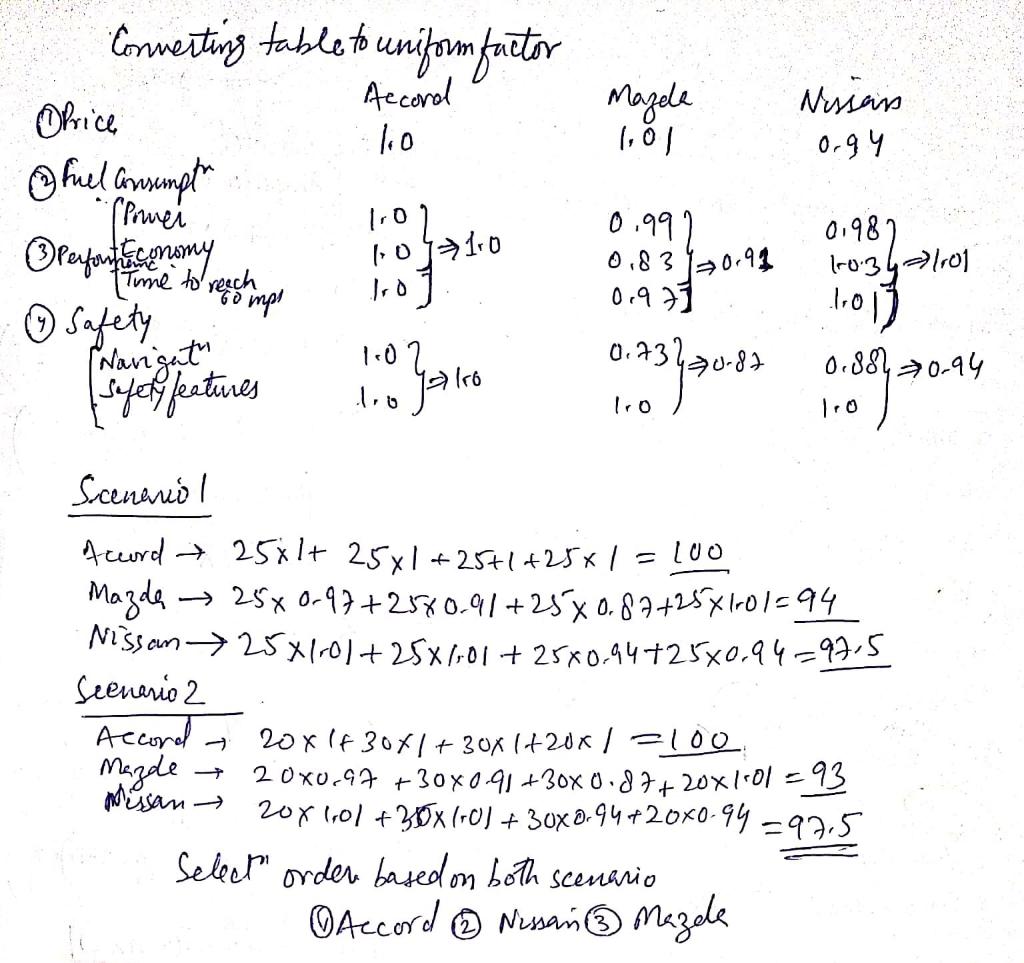 Converting table to uniform factor
Accord Mazda Nissan
① Price 1.0 1.01 0.94
② Fuel Consumptn
Power 1.0 0.99 0.98
③ Performance Economy 1.0 ⇒ 1.0 0.83 ⇒ 0.91 1.03 ⇒ 1.01
Time to reach 60 mps 1.0 0.97 1.01
④ Safety
Navigatn 1.0 ⇒ 1.0 0.73 ⇒ 0.87 0.88 ⇒ 0.94
Safety features 1.0 1.0 1.0
Scenario 1
Accord → 25x1+ 25x1 + 25+1 + 25x1 = 100
Mazda → 25x 0.97 + 25x0.91 + 25x 0.87+25x1.01 = 94
Nissan → 25x1.01 + 25x1.01 + 25x0.94+25x0.94 = 97.5
Scenario 2
Accord → 20x1+ 30x1 + 30x1+20x1 = 100
Mazda → 20x0.97 + 30x0.91 + 30x0.87 + 20x1.01 = 93
Nissan → 20x1.01 + 30x1.01 + 30x0.94 + 20x0.94 = 97.5
Selectn order based on both scenario
① Accord ② Nissan ③ Mazda